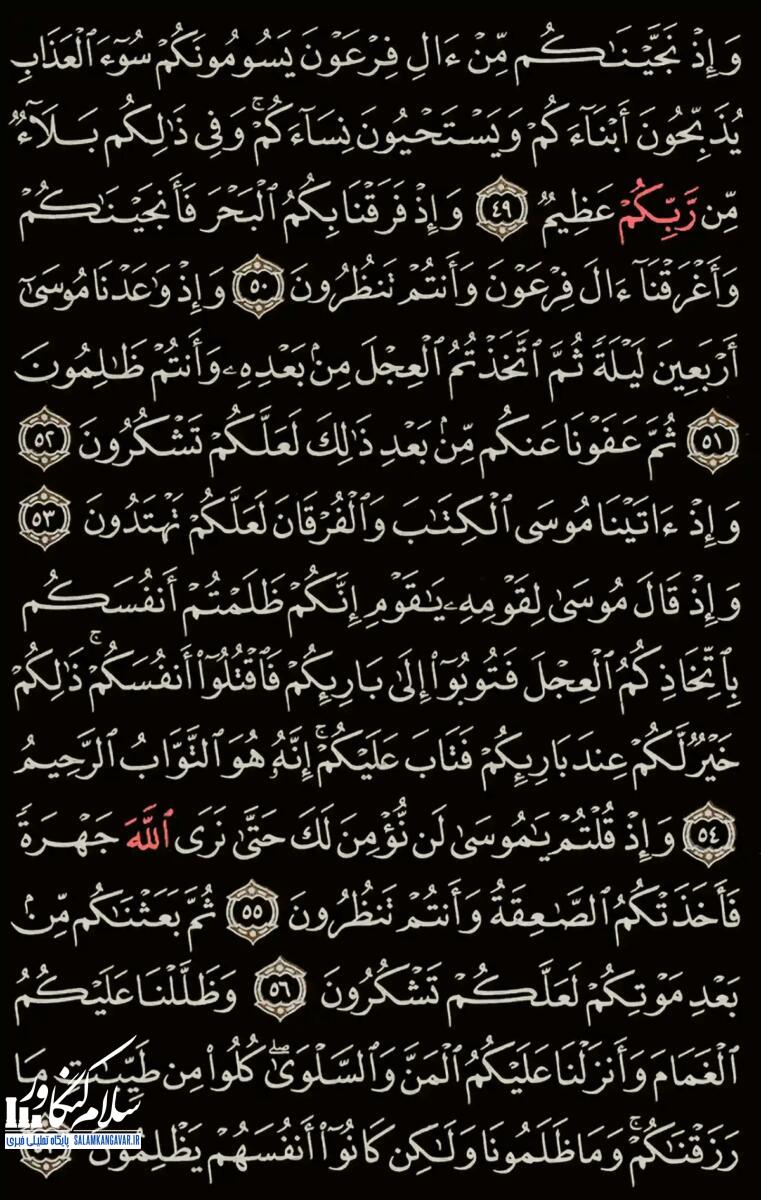 وَإِذْ نَجَّيْنَٰكُم مِّنْ ءَالِ فِرْعَوْنَ يَسُومُونَكُمْ سُوٓءَ ٱلْعَذَابِ
يُذَبِّحُونَ أَبْنَآءَكُمْ وَيَسْتَحْيُونَ نِسَآءَكُمْ ۚ وَفِى ذَٰلِكُم بَلَآءٌ
مِّن رَّبِّكُمْ عَظِيمٌ ٤٩ وَإِذْ فَرَقْنَا بِكُمُ ٱلْبَحْرَ فَأَنجَيْنَٰكُمْ
وَأَغْرَقْنَآ ءَالَ فِرْعَوْنَ وَأَنتُمْ تَنظُرُونَ ٥٠ وَإِذْ وَٰعَدْنَا مُوسَىٰٓ
أَرْبَعِينَ لَيْلَةً ثُمَّ ٱتَّخَذْتُمُ ٱلْعِجْلَ مِنۢ بَعْدِهِۦ وَأَنتُمْ ظَٰلِمُونَ
٥١ ثُمَّ عَفَوْنَا عَنكُم مِّنۢ بَعْدِ ذَٰلِكَ لَعَلَّكُمْ تَشْكُرُونَ ٥٢
وَإِذْ ءَاتَيْنَا مُوسَى ٱلْكِتَٰبَ وَٱلْفُرْقَانَ لَعَلَّكُمْ تَهْتَدُونَ ٥٣
وَإِذْ قَالَ مُوسَىٰ لِقَوْمِهِۦ يَٰقَوْمِ إِنَّكُمْ ظَلَمْتُمْ أَنفُسَكُم
بِٱتِّخَاذِكُمُ ٱلْعِجْلَ فَتُوبُوٓا۟ إِلَىٰ بَارِئِكُمْ فَٱقْتُلُوٓا۟ أَنفُسَكُمْ ۚ ذَٰلِكُمْ
خَيْرٌ لَّكُمْ عِندَ بَارِئِكُمْ فَتَابَ عَلَيْكُمْ ۚ إِنَّهُۥ هُوَ ٱلتَّوَّابُ ٱلرَّحِيمُ
٥٤ وَإِذْ قُلْتُمْ يَٰمُوسَىٰ لَن نُّؤْمِنَ لَكَ حَتَّىٰ نَرَى ٱللَّهَ جَهْرَةً
فَأَخَذَتْكُمُ ٱلصَّٰعِقَةُ وَأَنتُمْ تَنظُرُونَ ٥٥ ثُمَّ بَعَثْنَٰكُم مِّنۢ
بَعْدِ مَوْتِكُمْ لَعَلَّكُمْ تَشْكُرُونَ ٥٦ وَظَلَّلْنَا عَلَيْكُمُ
ٱلْغَمَامَ وَأَنزَلْنَا عَلَيْكُمُ ٱلْمَنَّ وَٱلسَّلْوَىٰ ۖ كُلُوا۟ مِن طَيِّبَٰتِ مَا
رَزَقْنَٰكُمْ ۚ وَمَا ظَلَمُونَا وَلَٰكِن كَانُوٓا۟ أَنفُسَهُمْ يَظْلِمُونَ
سلام کنگاور
پایگاه تحلیلی خبری SALAMKANGAVAR.IR